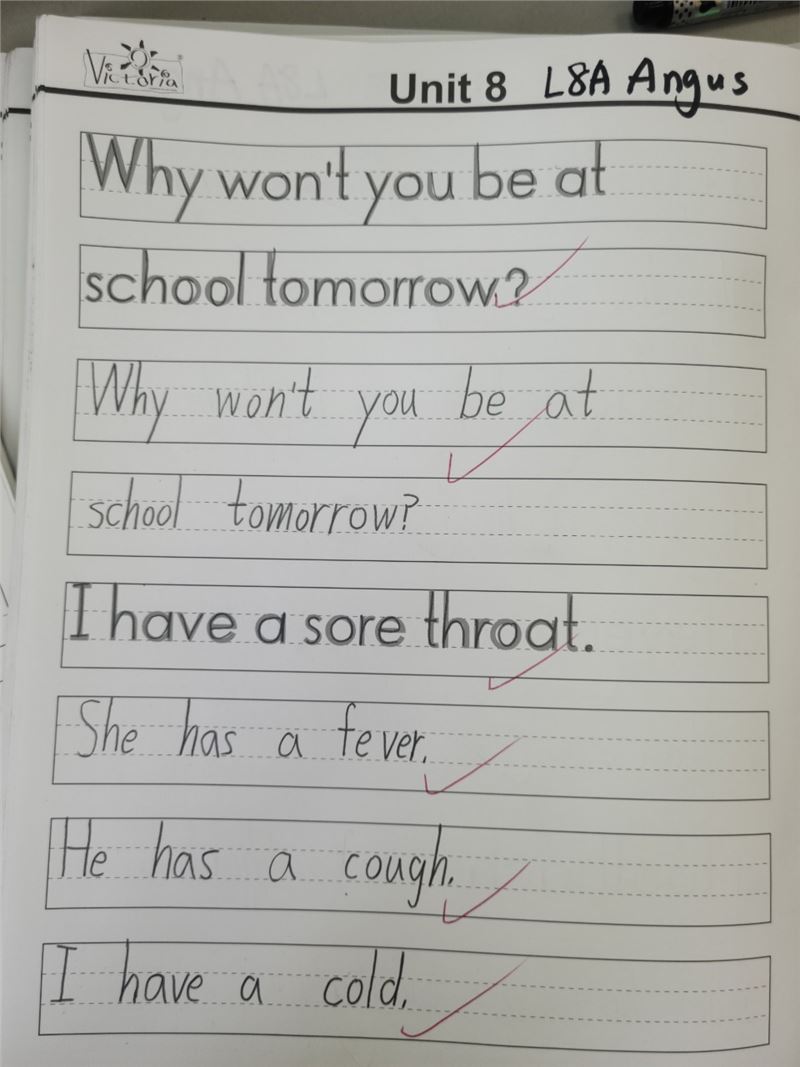 Victoria
Unit 8 L8A Angus
Why won't you be at
school tomorrow?
Why won't you be at
school tomorrow?
I have a sore throat.
She has a fever.
He has a cough.
I have a cold.